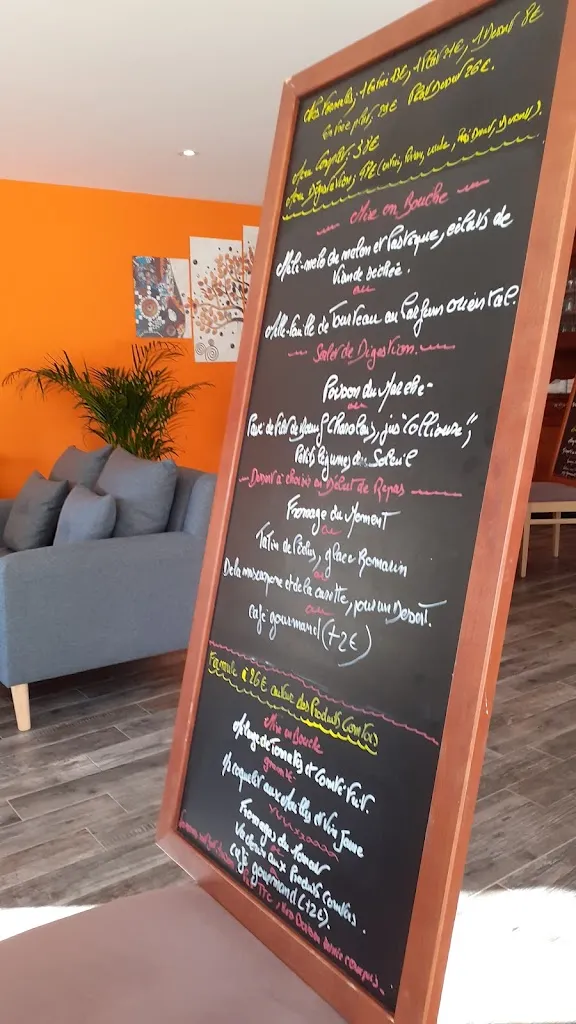 Nos Formules, 1 Entrée 13€, 1 Plat 21€, 1 Dessert 8€
Entrée plat: 29€ Plat Dessert 26€.
Menu Complet: 37€
Menu Dégustation, 47€ (entrée, Poisson, viande, Pré Dessert, Dessert).
Mise en Bouche
Méli-mélo de melon et Pastèque, éclats de
Viande séchée.
ou
Mille-feuille de Tourteau au Parfum oriental.
Suite de Dégustation.
Poisson du Marché
ou
Pavé de Filet de Boeuf Charolais, jus "Collioure",
Petits légumes du Soleil
Dessert à choisir en Début de Repas
Fromage du Moment
ou
Tatin de Poires, glace Romarin
ou
De la mascarpone et de la carotte, pour un Dessert.
ou
Café gourmand (+2€)
Formule à 26€ autour des Produits Comtois
Mise en Bouche
de Tomates et Comté Fruit.
aux Morilles et Vin Jaune
Fromages du Moment
ou
aux Produits Comtois.
ou
Café gourmand (+2€).
Prix TTC,